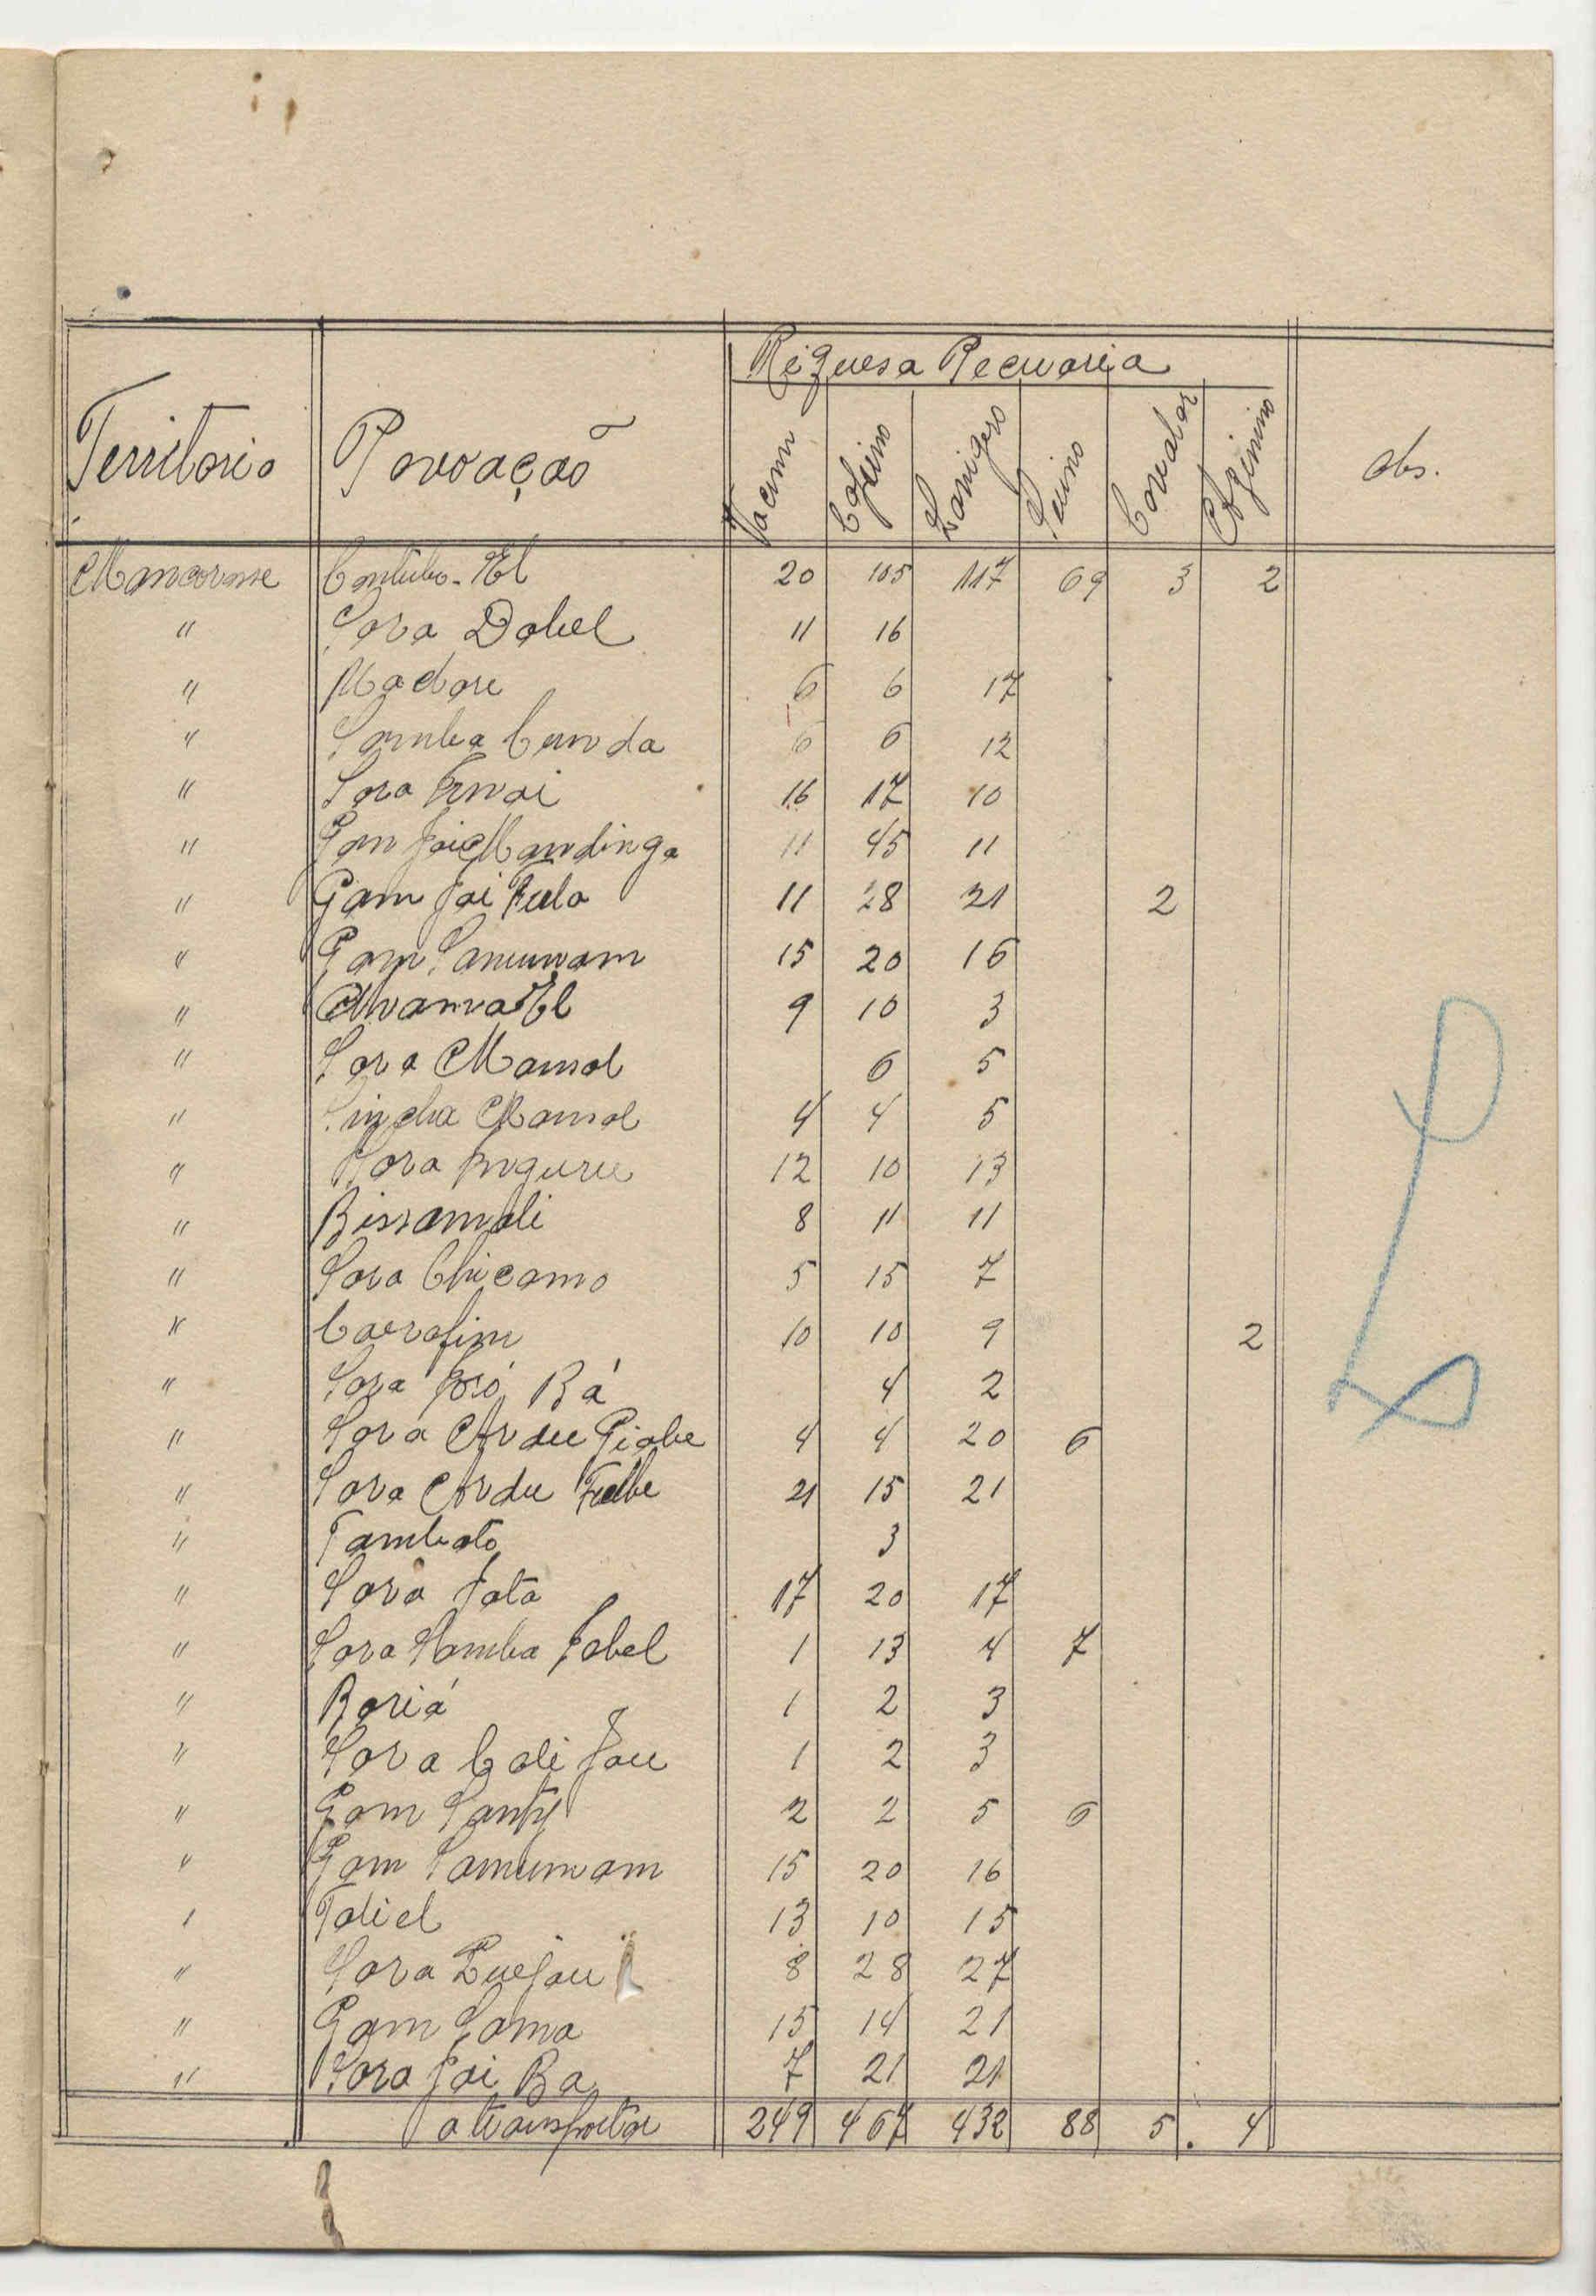 Riquesa Pecuaria
Territorio Povoação Vacum Caprino Lanigero Suino Cavalar Azinino obs.
Mancrosse Contubo-El 20 105 117 69 3 2
" Sara Dabel 11 16
" Madare 6 6 17
" Samba Cunda 6 6 12
" Sara 16 17 10
" Gam Jai Mandinga 11 45 11
" Gam Jai Fula 11 28 21 2
" Gam Samunam 15 20 16
" 9 10 3
" Sara Mansal 6 5
" Sincha Mansal 4 4 5
" Sara 12 10 13
" Bissamali 8 11 11
" Sara Chicamo 5 15 7
" Carafim 10 10 9 2
" Sara José Bá 4 2
" Sara Ardu Giabe 4 4 20 6
" Sara Ardu Fulbe 21 15 21
" Tambato 3
" Sara Jata 17 20 17
" Sara Samba Jabel 1 13 4 7
" Bariá 1 2 3
" Sara Cali Jau 1 2 3
" Gam Santy 2 2 5 6
" Gam Samunam 15 20 16
" Taliel 13 10 15
" Sara 8 28 27
" Gam Sama 15 14 21
" Sara Jai Ba 7 21 21
a transportar 249 467 432 88 5 4